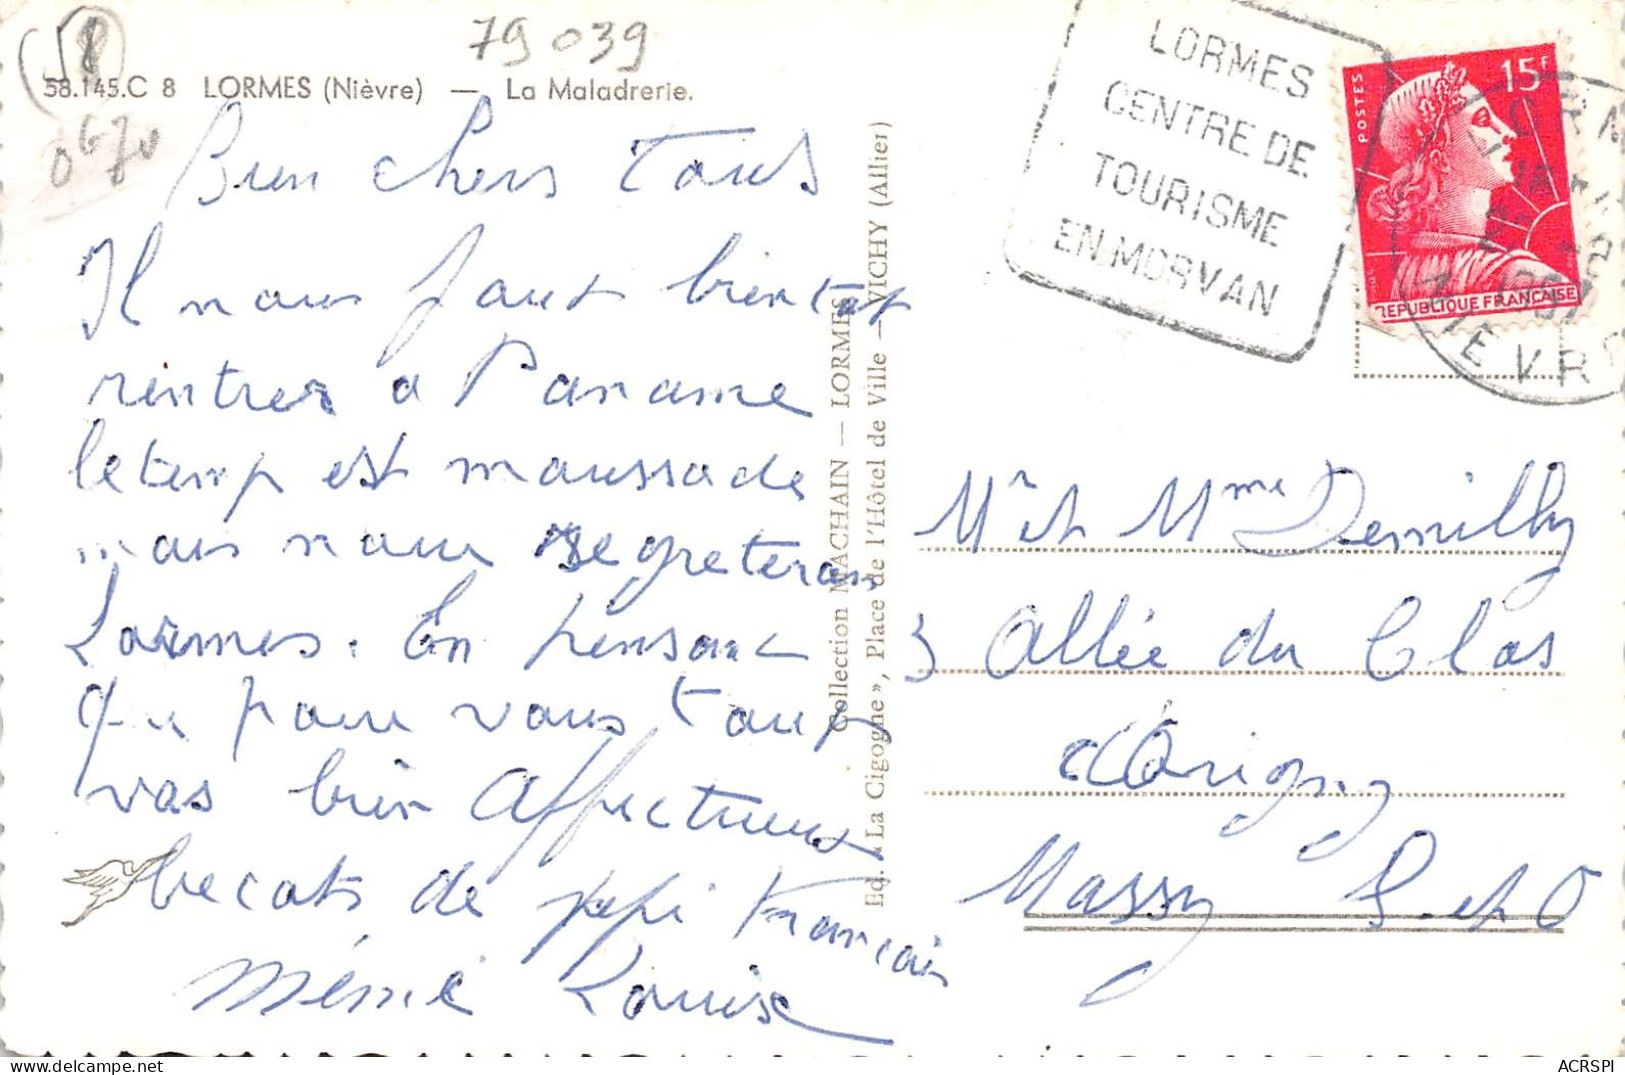 79 039
58.145.C 8 LORMES (Nièvre) — La Maladrerie.
Bien chers tous
Il nous faut bientot
rentrer a Paname
le temp est maussade
mais nous regreteron
Lormes. En pensant
que pour vous tous
vas bien Affectueux
becots de pepi Francois
mémé Louise
Collection MACHAIN — LORMES
Ed. « La Cigogne », Place de l'Hôtel de Ville — VICHY (Allier)
LORMES
CENTRE DE
TOURISME
EN MORVAN
POSTES
15F
REPUBLIQUE FRANÇAISE
NIÈVRE
Mr et Mme Demilly
3 Allée du Clos
d'Origny
Massy S. et O
ACRSPI